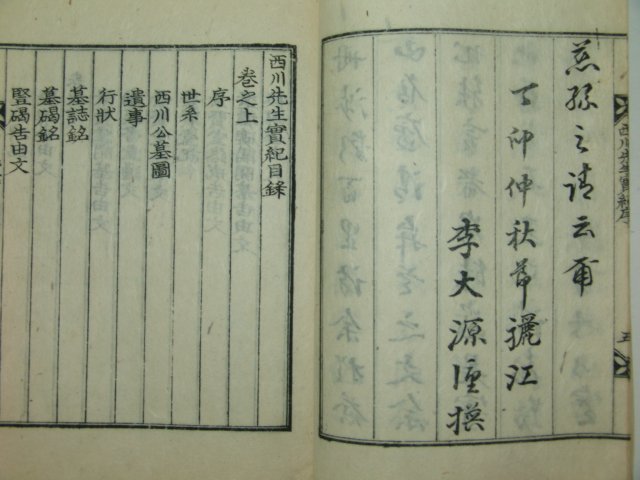 西川先生實紀序
五
慈孫之請云爾
丁卯仲秋節驪江
李大源謹撰
西川先生實紀目錄
卷之上
序
世系
西川公墓圖
遺事
行狀
墓誌銘
墓碣銘
豎碣告由文